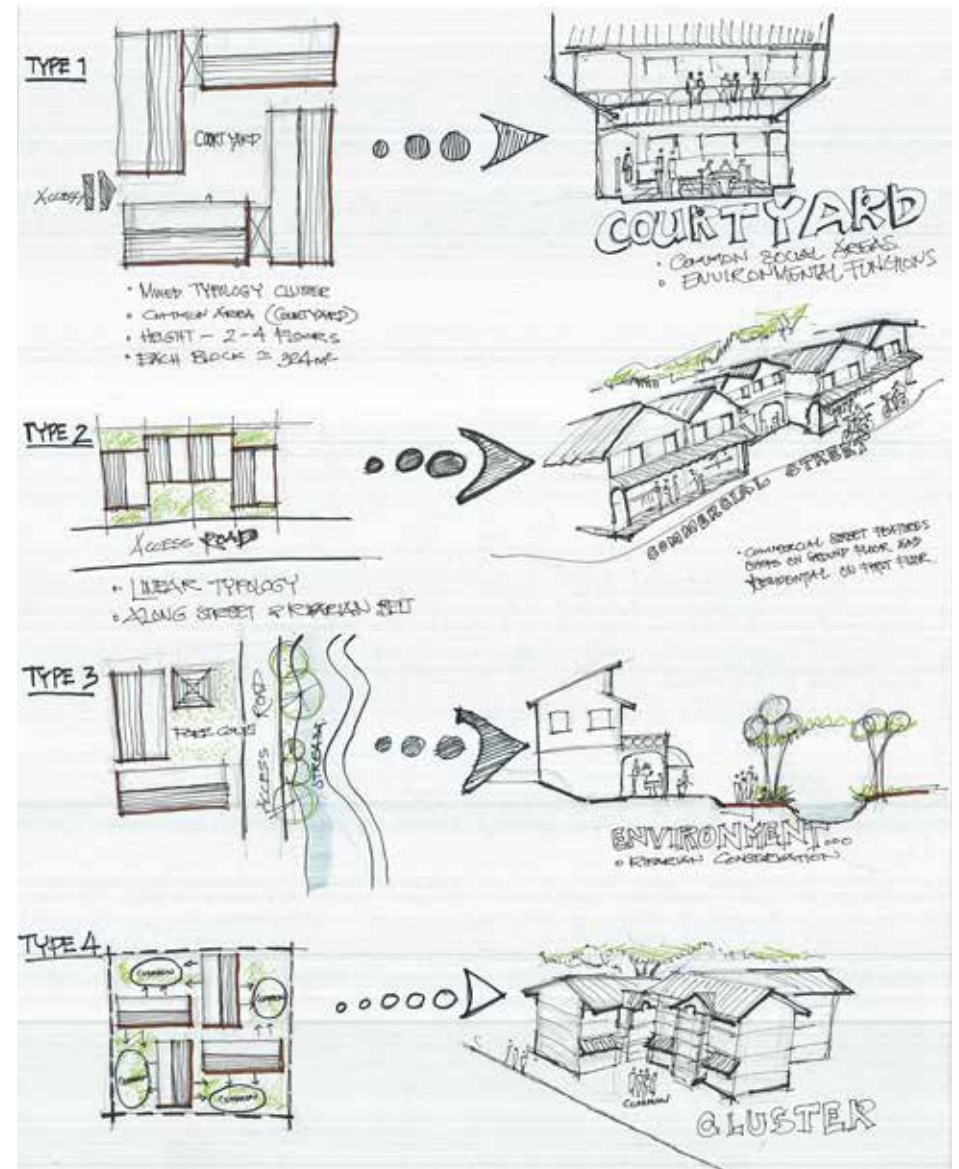 TYPE 1
COURTYARD
ACCESS
• MIXED TYPOLOGY CLUSTER
• COMMON AREA (COURTYARD)
• HEIGHT - 2-4 FLOORS
• EACH BLOCK ≃
COURTYARD
• COMMON SOCIAL AREAS
• ENVIRONMENTAL FUNCTIONS
TYPE 2
ACCESS ROAD
• LINEAR TYPOLOGY
• ALONG STREET & RIPARIAN BELT
COMMERCIAL STREET
• COMMERCIAL STREET FEATURES
SHOPS ON GROUND FLOOR AND
RESIDENTIAL ON FIRST FLOOR.
TYPE 3
COURT
ACCESS ROAD
STREAM
ENVIRONMENT...
• RIPARIAN CONSERVATION
TYPE 4
COMMON
COMMON
COMMON
COMMON
COMMON
CLUSTER